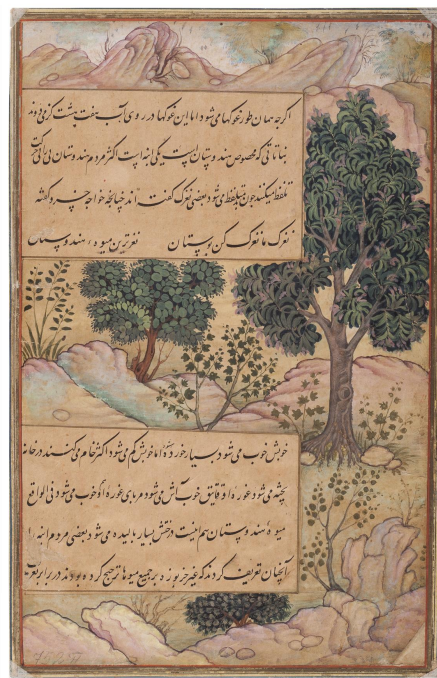 اگرچه همان طور غوکها می شود اما این غوکها در روی آب هفت هشت گز می دوند
نباتاتی که مخصوص هندوستان است یکی انبه است اکثر مردم هندوستان بی را بی حرکت
تلفظ میکنند چون بد تلفظ می شود بعضی نغزک گفته اند چنانچه خواجه خسرو گفته
نغزک ما نغزک کن بوستان نغزترین میوه هندوستان
خوبش خوب می شود بسیار خورده شد اما خوبش کم می شود اکثر خام می کنند در خانه
پخته می شود غوره او قاتق خوب آش می شود مربای غوره او خوب می شود فی الواقع
میوه هندوستان همانست درختش بسیار بالیده می شود بعضی مردم انبه را
آنچنان تعریف کردند که غیر خربوزه بر جمیع میوها ترجیح کرده بودند در برابر